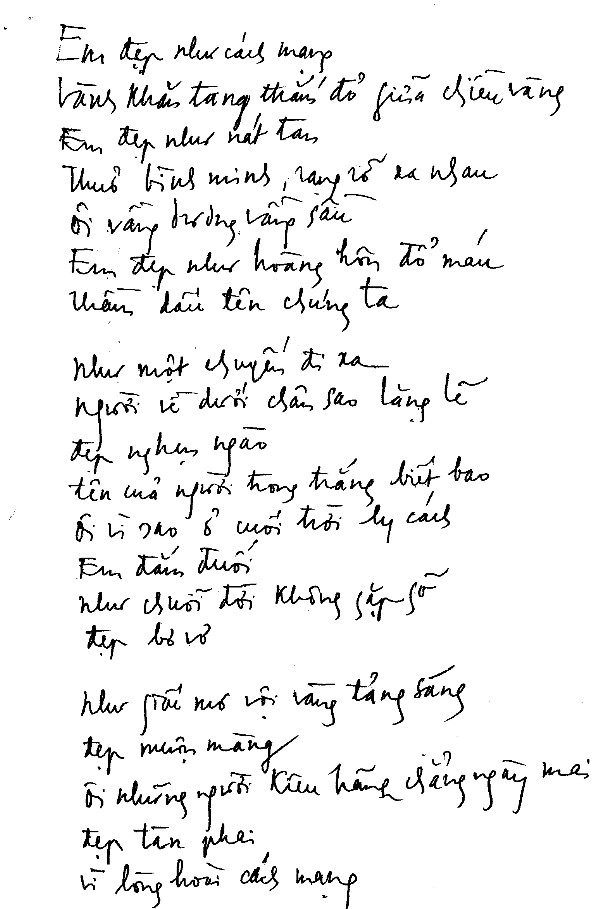 Em đẹp như cách mạng
Vành khăn tang thắm đỏ giữa chiều vàng
Em đẹp như nát tan
Thuở bình minh, rạng rỡ xa nhau
Ôi vầng dương vầng sầu
Em đẹp như hoàng hôn đổ máu
Thầm dấu tên chúng ta
Như một chuyến đi xa
Người về dưới chân sao lặng lẽ
đẹp nghẹn ngào
tên của người trong trắng biết bao
Ôi vì sao ở cuối trời ly cách
Em đắm đuối
Như chuỗi đời không gặp gỡ
đẹp bơ vơ
Như giấc mơ vội vàng tảng sáng
đẹp muộn màng
Ôi những người kiêu hãng chẳng ngày mai
đẹp tàn phai
Vì lòng hoài cách mạng